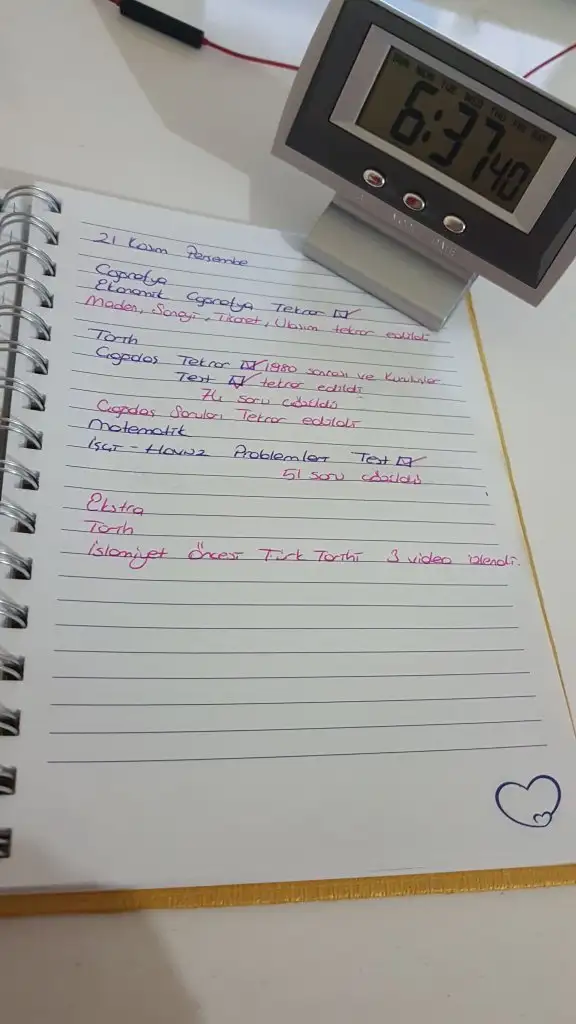 SUN MON TUE WED THU FRI SAT
6:37 40
21 Kasım Perşembe
Coğrafya
Ekonomik Coğrafya Tekrar ☑
Maden, Sanayi, Ticaret, Ulaşım tekrar edildi
Tarih
Çağdaş Tekrar ☑ 1980 sonrası ve Kuruluşlar
Test ☑ tekrar edildi.
74 soru çözüldü
Çağdaş Soruları Tekrar edildi
Matematik
İşçi - Havuz Problemleri Test ☑
51 soru çözüldü
Ekstra
Tarih
İslamiyet Öncesi Türk Tarihi 3 video izlendi.